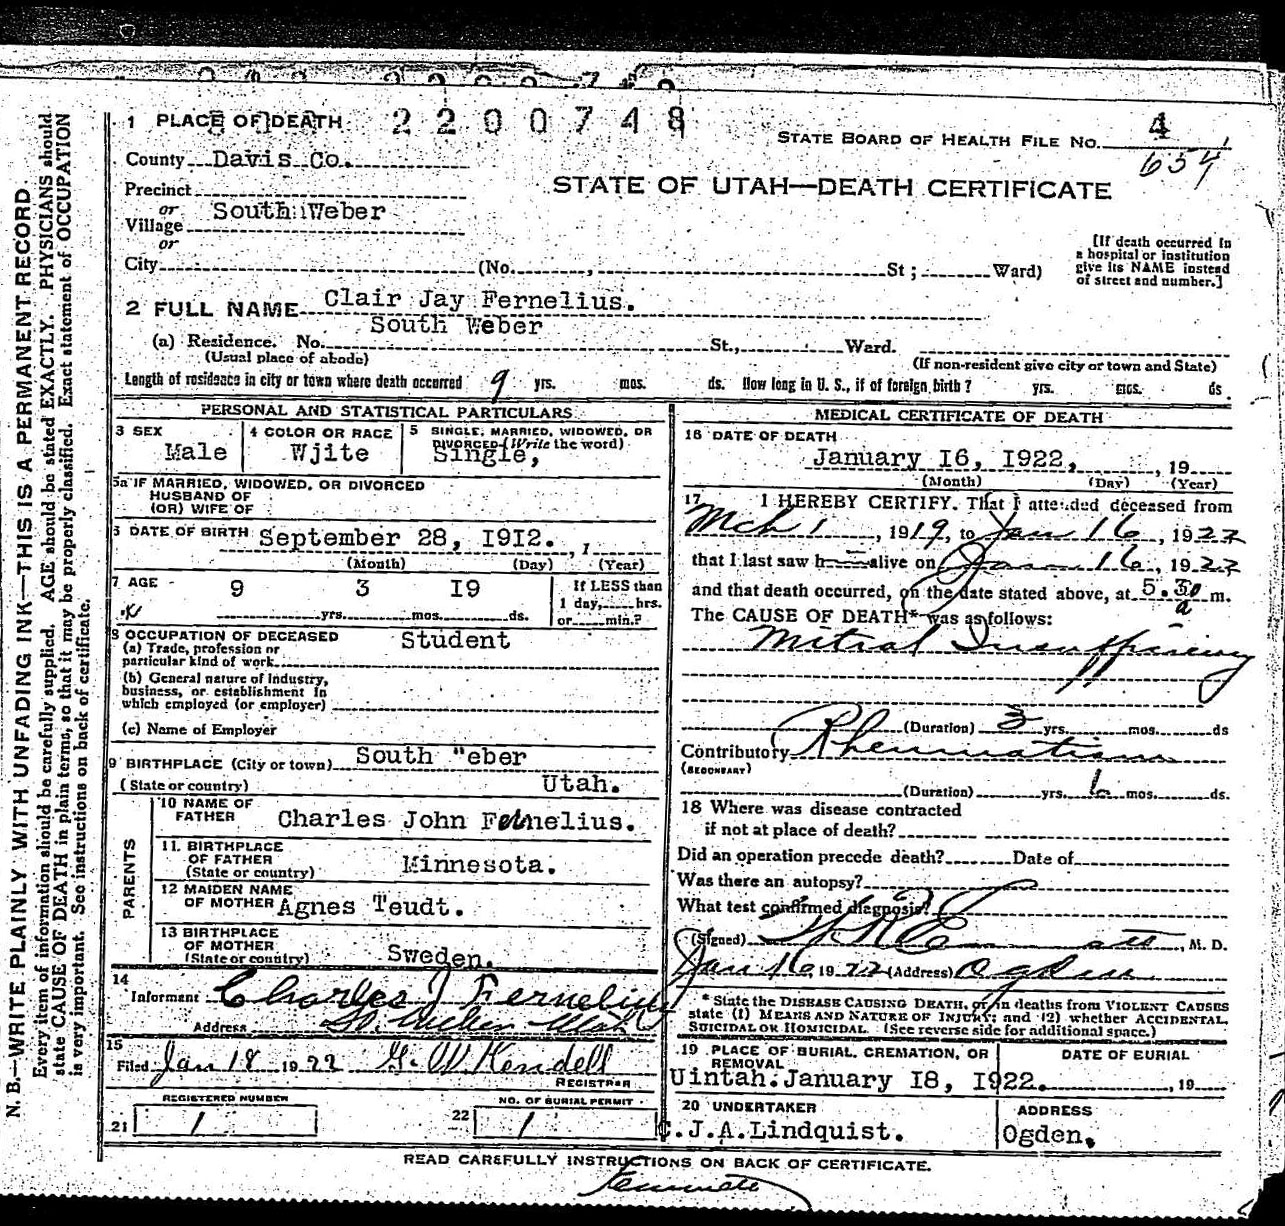 1 PLACE OF DEATH 2200748
STATE BOARD OF HEALTH FILE No. 4
654
County Davis Co.
STATE OF UTAH—DEATH CERTIFICATE
Precinct
or South Weber
Village
or
City (No. , St ; Ward)
[If death occurred in
a hospital or institution
give its NAME instead
of street and number.]
2 FULL NAME Clair Jay Fernelius.
South Weber
(a) Residence. No. St., Ward.
(Usual place of abode) (If non-resident give city or town and State)
Length of residence in city or town where death occurred 9 yrs. mos. ds. How long in U. S., if of foreign birth? yrs. mos. ds.
PERSONAL AND STATISTICAL PARTICULARS
3 SEX 4 COLOR OR RACE 5 SINGLE, MARRIED, WIDOWED, OR
DIVORCED (Write the word)
Male Wjite Single,
5a IF MARRIED, WIDOWED, OR DIVORCED
HUSBAND OF
(OR) WIFE OF
6 DATE OF BIRTH September 28, I9I2. , 1
(Month) (Day) (Year)
7 AGE 9 3 I9 If LESS than
1 day, hrs.
yrs. mos. ds. or min.?
8 OCCUPATION OF DECEASED Student
(a) Trade, profession or
particular kind of work
(b) General nature of Industry,
business, or establishment in
which employed (or employer)
(c) Name of Employer
9 BIRTHPLACE (City or town) South "eber
(State or country) Utah.
PARENTS
10 NAME OF
FATHER Charles John Fernelius.
11. BIRTHPLACE
OF FATHER
(State or country) Minnesota.
12 MAIDEN NAME
OF MOTHER Agnes Teudt.
13 BIRTHPLACE
OF MOTHER
(State or country) Sweden.
14
Informant Charles J Fernelius
Address So. Weber Utah
15
Filed Jan 18 1922 G. W. Kendell
REGISTRAR
REGISTERED NUMBER NO. OF BURIAL PERMIT
21 1 22 1
MEDICAL CERTIFICATE OF DEATH
16 DATE OF DEATH
January I6, I922, , 19
(Month) (Day) (Year)
17 I HEREBY CERTIFY. That I attended deceased from
Mch 1 , 1919, to Jan 16 , 1922
that I last saw h alive on Jan 16 , 1922
and that death occurred, on the date stated above, at 5.30 a m.
The CAUSE OF DEATH* was as follows:
Mitral Insufficiency
(Duration) 3 yrs. mos. ds
Contributory Rheumatism
(SECONDARY)
(Duration) yrs. mos. ds.
18 Where was disease contracted
if not at place of death?
Did an operation precede death? Date of
Was there an autopsy?
What test confirmed diagnosis?
(Signed) , M. D.
Jan 16, 1922 (Address) Ogden
* State the DISEASE CAUSING DEATH, or, in deaths from VIOLENT CAUSES
state (1) MEANS AND NATURE OF INJURY; and (2) whether ACCIDENTAL,
SUICIDAL OR HOMICIDAL. (See reverse side for additional space.)
19 PLACE OF BURIAL, CREMATION, OR
REMOVAL DATE OF BURIAL
Uintah. January I8, I922. , 19
20 UNDERTAKER ADDRESS
C.J.A.Lindquist. Ogden.
READ CAREFULLY INSTRUCTIONS ON BACK OF CERTIFICATE.
N. B.—WRITE PLAINLY WITH UNFADING INK—THIS IS A PERMANENT RECORD.
Every item of information should be carefully supplied. AGE should be stated EXACTLY. PHYSICIANS should
state CAUSE OF DEATH in plain terms, so that it may be properly classified. Exact statement of OCCUPATION
is very important. See instructions on back of certificate.